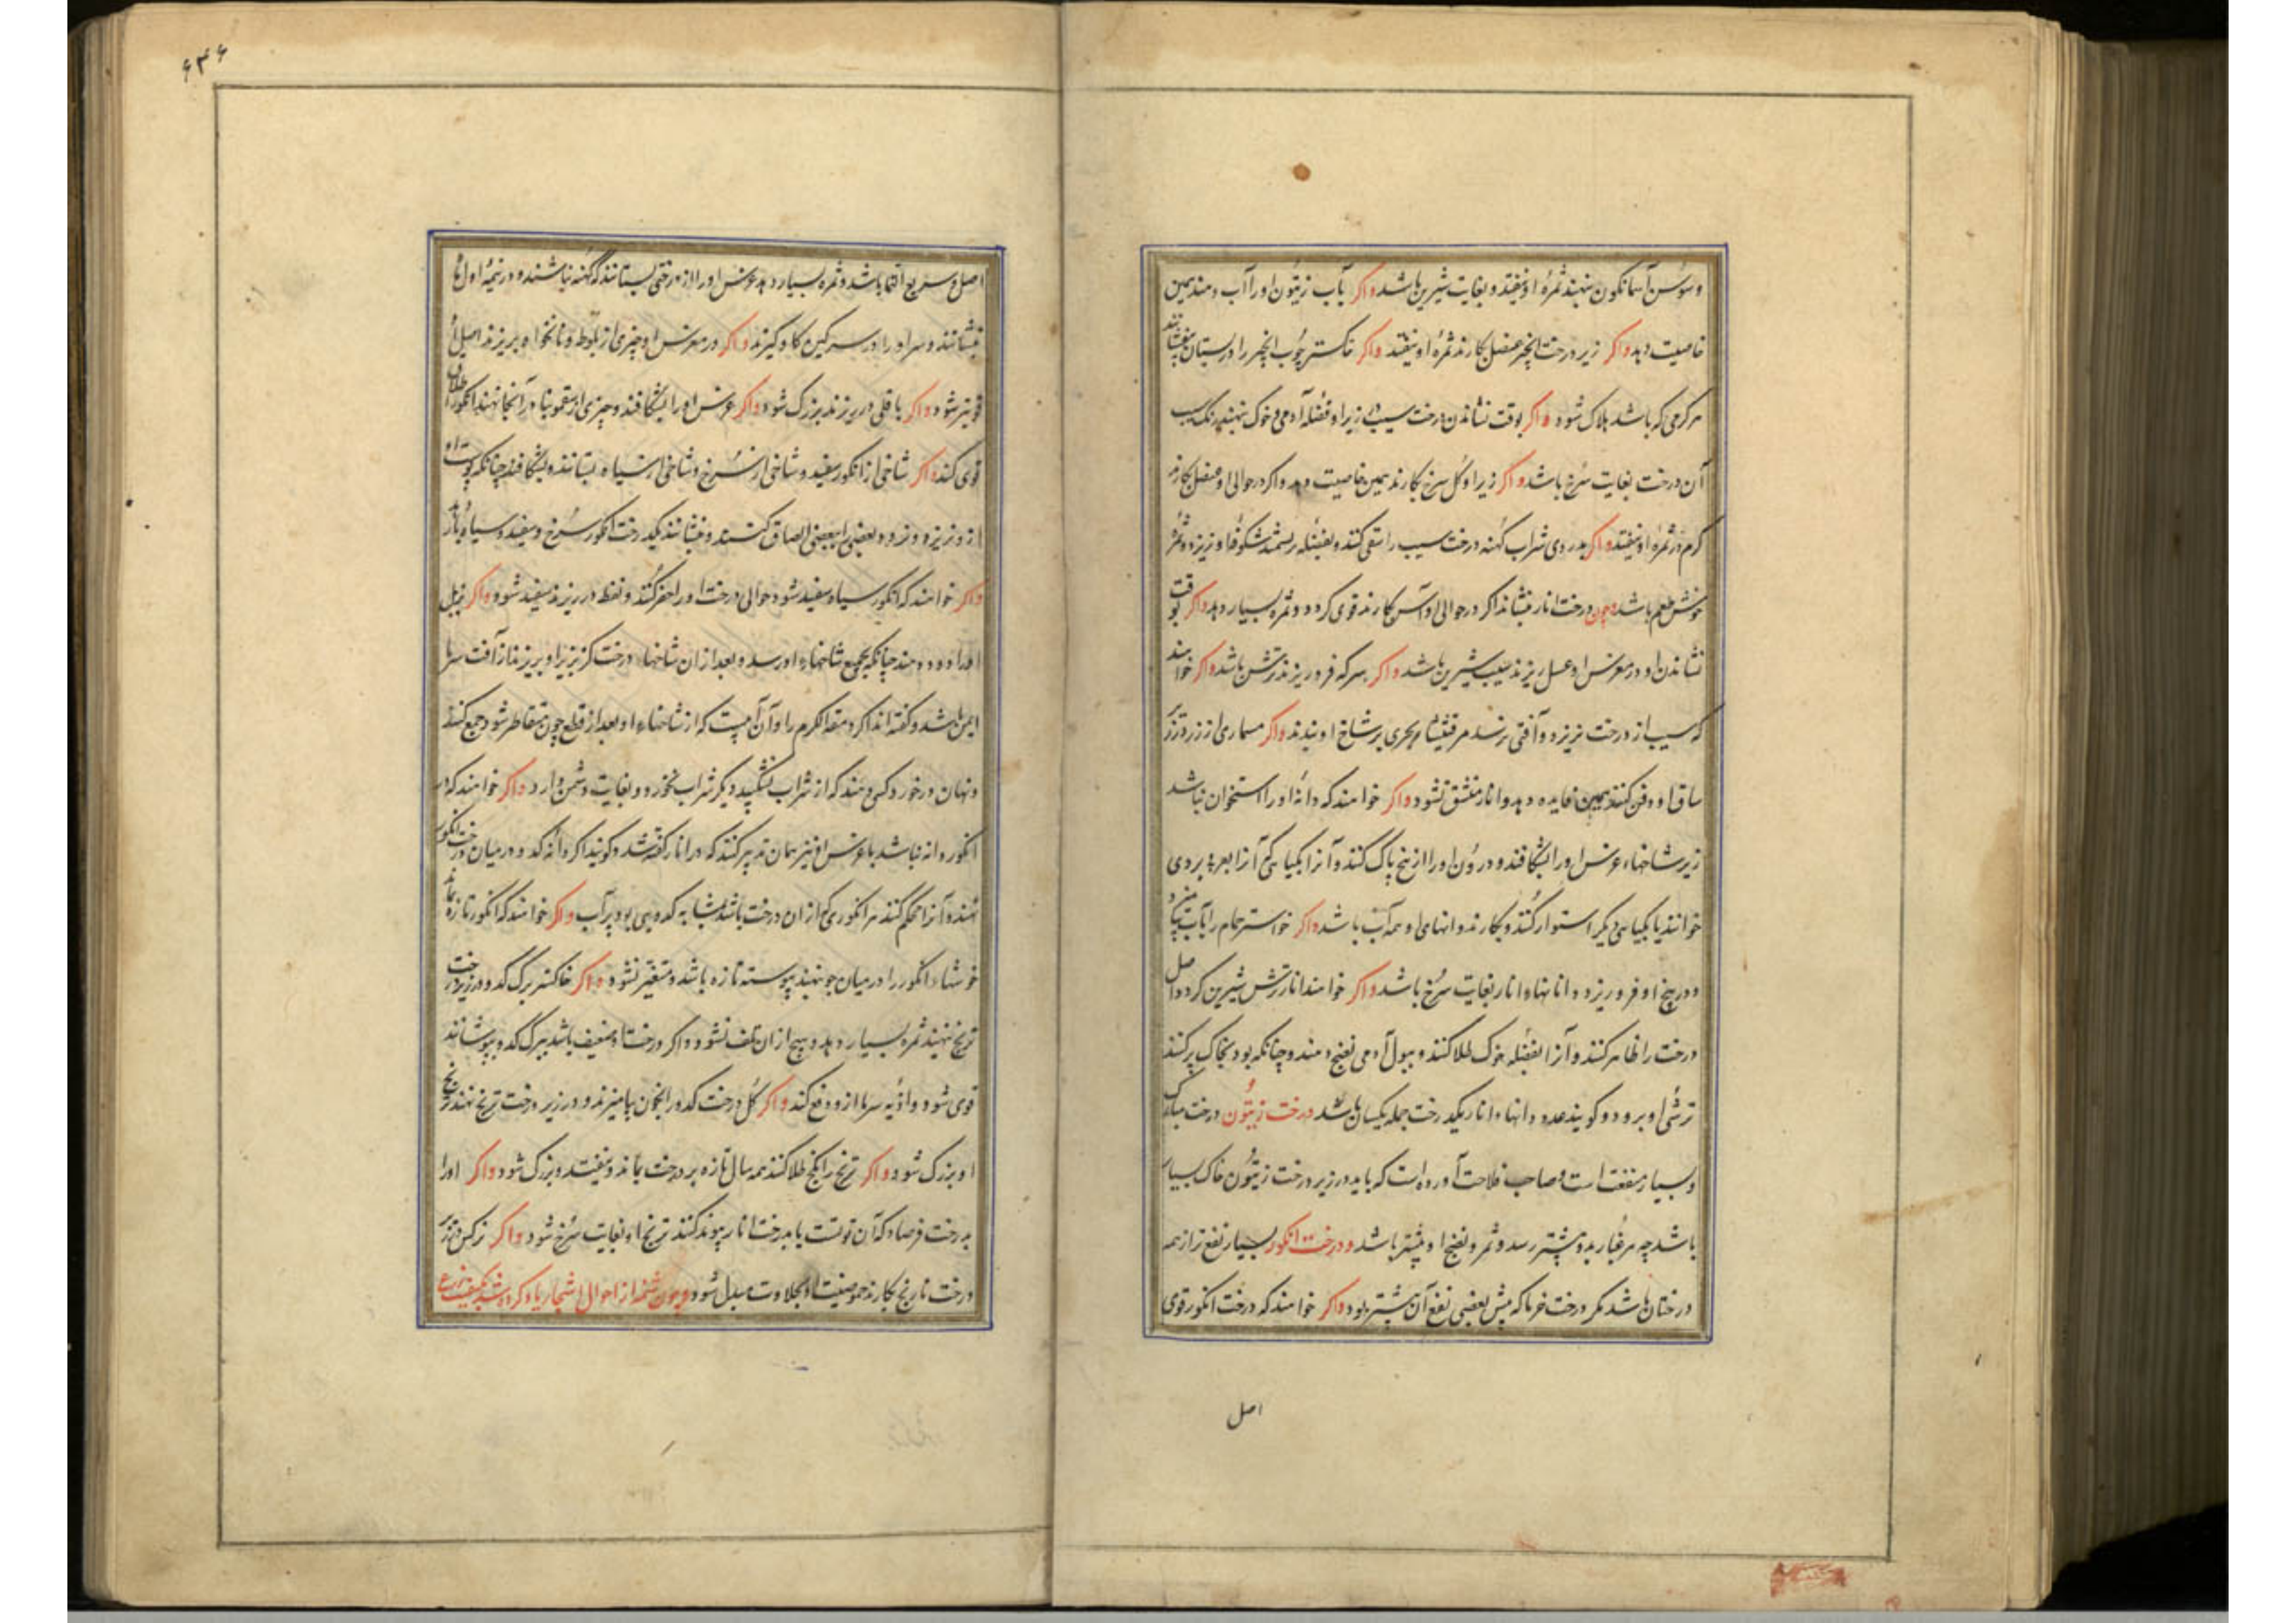 وسوسن آسمانگون نهند ثمرهٔ او نیفتد و بغایت شیرین باشد واکر بآب زیتون او را آب دهند همین
خاصیت دهد واکر زیر درخت انجیر عنصل کارند ثمره او نیفتد واکر خاکستر چوب انجیر را در بستان
هر کرمی که باشد هلاک شود واکر بوقت نشاندن درخت سیب در زیر او فضله آدمی و خوک نهند رنک سیب
آن درخت بغایت سرخ باشد واکر زیر او کل سرخ بکارند همین خاصیت دهد واکر در حوالی او عنصل بکارند
کرم در ثمرهٔ او نیفتد واکر بدردی شراب کهنه درخت سیب را سقی کنند و بفضله شکوفهٔ او نریزد و ثمر
خوش طعم باشد وچون درخت انار بنشانند اکر در حوالی او آس کارند قوی کردد و ثمره بسیار دهد واکر بوقت
نشاندن او در مغرس او عسل ریزند سیب شیرین باشد واکر سرکه فرو ریزند ترش باشد واکر خواهند
که سیب از درخت نریزد و آفتی نرسد مرقشیشاء بحری بر شاخ او بندند واکر مسماری از زر در زیر
ساق او دفن کنند همین فایده دهد و انار منشق نشود واکر خواهند که دانهٔ او را استخوان نباشد
زیر شاخهاء غرس او را بشکافند و درون او را از نخ پاک کنند و آنرا بکیاهی که آنرا بردی
خوانند یا بکیاهی دیکر استوار کنند و بکارند دانهای او همه آب باشد واکر خاکستر حمام را بآب
و در بیخ او فرو ریزد دانهاء انار بغایت سرخ باشد واکر خواهند انار ترش شیرین کردد اصل
درخت را ظاهر کنند و آنرا بفضله خوک طلا کنند و ببول آدمی نضج دهند و چنانکه بود بخاک پر کنند
ترشی او برود و کویند عدد دانهاء انار یکدرخت جمله یکسان باشد درخت زیتون درخت مبارک
و بسیار منفعت است و صاحب فلاحت آورده است که باید در زیر درخت زیتون خاک بسیار
باشد چه هر غبار بدو بیشتر رسد و ثمر و نضج او بیشتر باشد و درخت انکور بسیار نفع تر از همه
درختان باشد مکر درخت خرما که پیش بعضی نفع آن بیشتر بود واکر خواهند که درخت انکور قوی
اصل
۶۴۶
اصل و سریع النما باشد و ثمره بسیار دهد غرس او را از درختی بستانند که کهنه نباشد و در نیمهٔ اول ماه
بنشانند و سر او را در سرکین کاو کیرند واکر در مغرس او چیزی از بلوط و نانخواه بریزند اصل او
قویتر شود واکر باقلی در ریزند بزرک شود واکر غرس او را بشکافند و چیزی از سقمونیا در آنجا نهند انکور او اطلاق
قوی کند واکر شاخی از انکور سفید و شاخی از سرخ و شاخی از سیاه بستانند و بشکافند چنانکه پوست او
ازو نریزد و بعضی را ببعضی الصاق کنند و بنشانند یکدرخت انکور سرخ و سفید و سیاه بار
واکر خواهند که انکور سیاه سفید شود حوالی درخت او را حفر کنند و نفط در ریزند سفید شود واکر بزبل
او را دود دهند چنانکه بجمیع شاخهاء او رسد و بعد از آن شاخهاء درخت کز بزیر او بریزند از آفت سرما
ایمن باشد و کفته‌اند اکر دمعة الکرم را و آن آبیست که از شاخهاء او بعد از قطع چون متقاطر شود جمع کنند
و نهان در خورد کسی دهند که از شراب نشکیبد دیکر شراب نخورد و بغایت دشمن دارد واکر خواهند که در
انکور دانه نباشد با غرس او نیز همان تدبیر کنند که در انار کفته شد و کویند اکر دانه کدو در میان درخت انکور
نهند و آنرا محکم کنند هر انکوری که از آن درخت باشد مشابه کدوهی بود پر آب واکر خواهند که انکور تازه بماند
خوشهاء انکور را در میان جو نهند پیوسته تازه باشد و متغیر نشود واکر خاکستر برک کدو در زیر درخت
ترنج نهند ثمره بسیار دهد و هیچ از آن تلف نشود واکر درخت او ضعیف باشد ببرک کدو بپوشانند
قوی شود و اذیه سرما ازو دفع کند واکر کل درخت کدو را بخون بیامیزند و در زیر درخت ترنج نهند ترنج
او بزرک شود واکر ترنج را بکچ طلا کنند همه سال تازه بر درخت بماند و نیفتد و بزرک شود واکر او را
بدرخت فرصاد که آن توتست یا بدرخت انار پیوند کنند ترنج او بغایت سرخ شود واکر نرکس در زیر
درخت نارنج بکارند حموضیت او بحلاوت مبدل شود وچون شمهٔ از احوال اشجار یاد کرده شد بکیفیت زرع